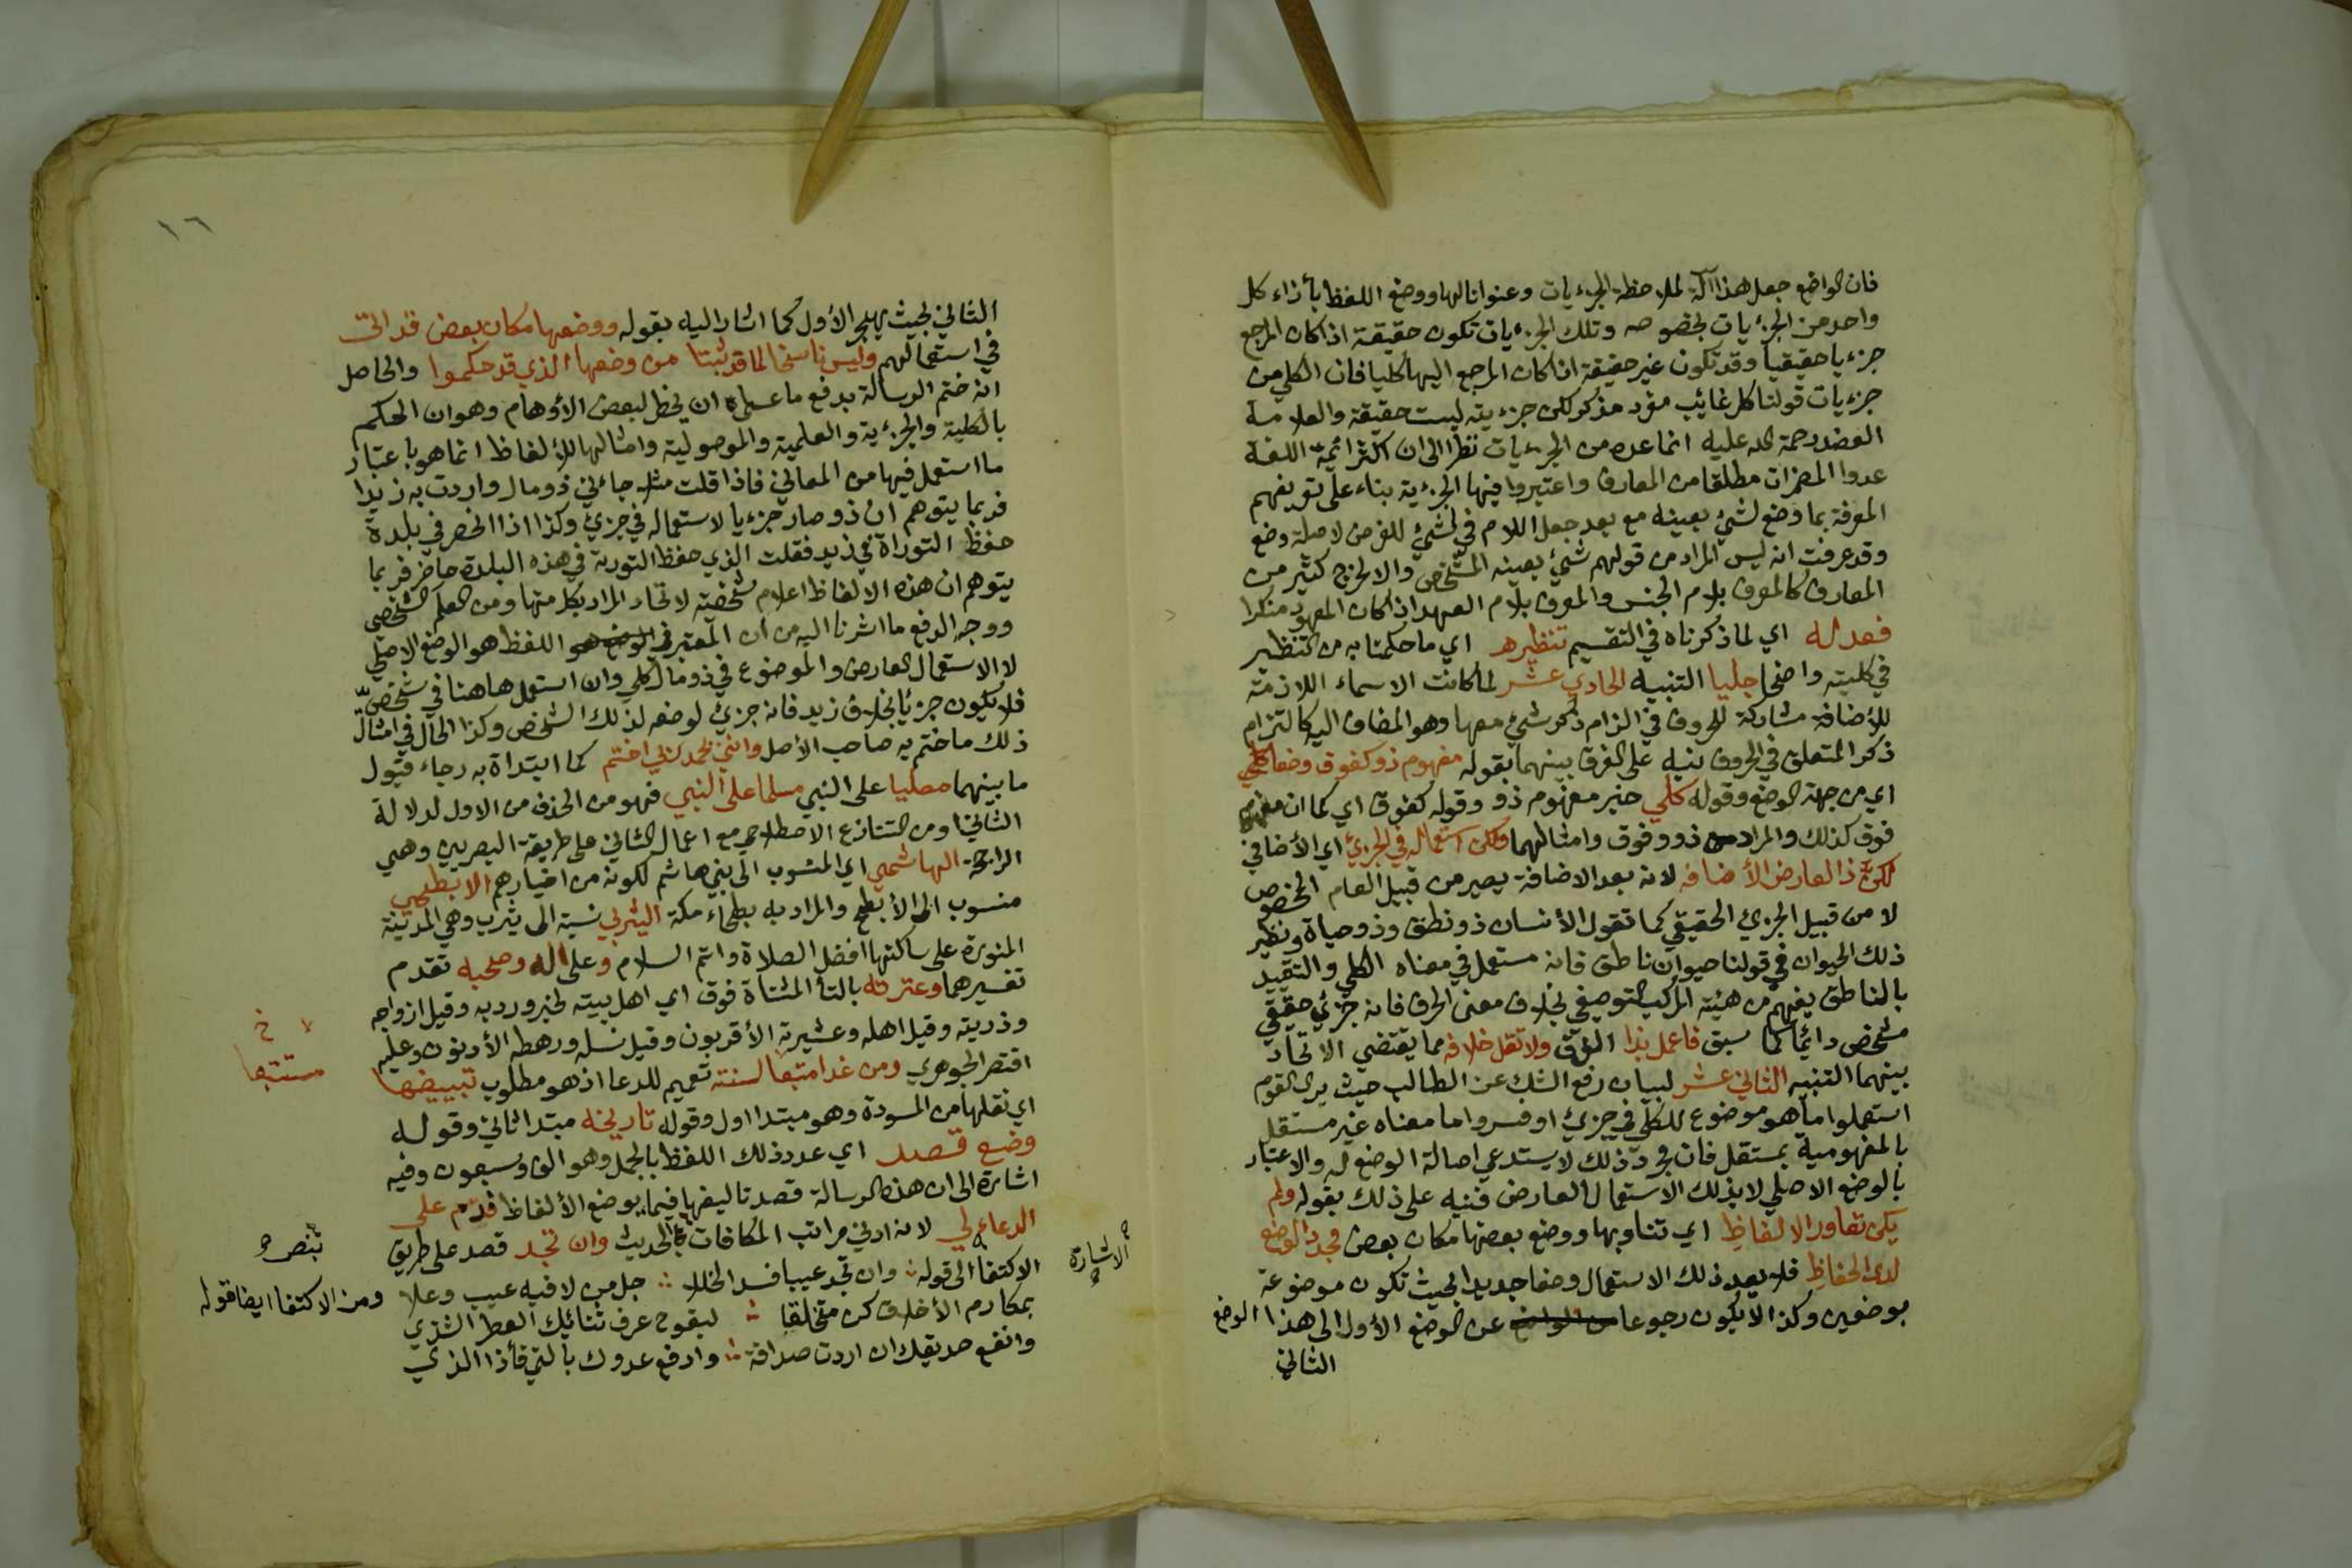 فان الواضع جعل هذا آلة لملاحظة الجزءيات وعنوانا لها ووضع اللفظ بأذاء كل
واحد من الجزءيات بخصوصه وتلك الجزءيات تكون حقيقة اذا كان المرجع
جزءيا حقيقيا وقد تكون غير حقيقة اذا كان المرجع اليها كليا فان الكلي من
جزءيات قولنا كل غائب مفرد مذكر لكن جزءيته ليست حقيقة والعلامة
العضد رحمة الله عليه انما عده من الجزءيات نظرا الى ان اكثر ائمة اللغة
عدوا المضمرات مطلقا من المعارف واعتبروا فيها الجزءية بناء على تعريفهم
المعرفة بما وضع لشيئ بعينه مع بعد جعل اللام في لشيئ للغرض لا صلة وضع
وقد عرفت انه ليس المراد من قولهم شيئ بعينه المشخص والا لخرج كثير من
المعارف كالمعرف بلام الجنس والمعرف بلام العهد اذا كان المعهود منكرا
فعد له اي لما ذكرناه في التقسيم تنظيره اي ما حكمنا به من التنظير
في كليته واضحا جليا التنبيه الحادي عشر لما كانت الاسماء اللازمة
للأضافة مشاركة للحروف في الزام ذكر شيئ معها وهو المضاف اليه كالتزام
ذكر المتعلق في الحروف نبه على الفرق بينهما بقوله مفهوم ذو كفوق وضعا كلي
اي من جهة الوضع وقوله كلي خبر مفهوم ذو وقوله كفوق اي كما ان مفهوم
فوق كذلك والمراد من ذو وفوق وامثالهما ولكن استعماله في الجزئ اي الأضافي
لكن ذا لعارض الأضافة لانه بعد الاضافة يصير من قبيل العام المخصوص
لا من قبيل الجزئ الحقيقي كما تقول الأنسان ذو نطق وذو حياة ونظير
ذلك الحيوان في قولنا حيوان ناطق فانه مستعمل في معناه الكلي والتقييد
بالناطق يفهم من هيئة المركب التوصيفي بخلاف معنى الحرف فانه جزئي حقيقي
مشخص دائما كما سبق فاعمل بذا الفرق ولا تقل خلافه مما يقتضي الاتحاد
بينهما التنبيه الثاني عشر لبيان رفع الشك عن الطالب حيث يرى القوم
استعملوا ما هو موضوع للكلي في جزئ او فسروا ما معناه غير مستقل
بالمفهومية بمستقل فان مجرد ذلك لا يستدعي اصالة الوضع له والاعتبار
بالوضع الاصلي لا بذلك الاستعمال العارض فنبه على ذلك بقوله ولم
يكن تعاور الالفاظ اي تناوبها ووضع بعضها مكان بعض مجدد الوضع
لدى الحفاظ فلا يعد ذلك الاستعمال وضعا جديدا بحيث تكون موضوعة
بوضعين وكذا لا يكون رجوعا عن الوضع الأول الى هذا الوضع
الثاني
١٦
الثاني بحيث يهجر الأول كما اشار اليه بقوله ووضعها مكان بعض قد اتى
في استعمالهم وليس ناسخا لما قد ثبتا من وضعها الذي قد حكموا والحاصل
انه ختم الرسالة بدفع ما عساه ان يخطر لبعض الأوهام وهو ان الحكم
بالكلية والجزءية والعلمية والموصولية وامثالها للألفاظ انما هو باعتبار
ما استعمل فيها من المعاني فاذا قلت مثلا جاءني ذو مال واردت به زيدا
فربما يتوهم ان ذو صار جزءيا لاستعماله في جزئ وكذا اذا انحصر في بلدة
حفظ التوراة في زيد فقلت الذي حفظ التورية في هذه البلدة حاضر فربما
يتوهم ان هذه الالفاظ اعلام شخصية لاتحاد المراد بكل منها ومن العلم الشخصي
ووجه الدفع ما اشرنا اليه من ان المعتبر في اللفظ هو الوضع الاصلي
لا الاستعمال العارض والموضوع في ذو مال كلي وان استعمل هاهنا في شخص
فلا يكون جزئيا بخلاف زيد فانه جزئ لوضعه لذلك الشخص وكذا الحال في امثال
ذلك ما ختم به صاحب الأصل وانني بحمد ربي اختم كما ابتداة به رجاء قبول
ما بينهما مصليا على النبي مسلما على النبي فهو من الحذف من الاول لدلالة
الثاني او من التنازع الاصطلاحي مع اعمال الثاني على طريقة البصريين وهي
الراجحة الهاشمي اي المنسوب الى بني هاشم لكونه من اخيارهم الابطحي
منسوب الى الأبطح والمراد به بطحاء مكة اليثربي نسبة الى يثرب وهي المدينة
المنورة على ساكنها افضل الصلاة واتم السلام وعلى اله وصحبه تقدم
تفسيرهما وعترته بالتأ المثناة فوق اي اهل بيته لخبر ورد به وقيل ازواجه
وذريته وقيل اهله وعشيرته الأقربون وقيل نسله ورهطه الأدنون وعليه
اقتصر الجوهري ومن غدا متبعا لسنته تعميم للدعا اذ هو مطلوب تبييضها
اي نقلها من المسودة وهو مبتدا اول وقوله تاريخه مبتدا ثاني وقوله
وضع قصد اي عدد ذلك اللفظ بالجمل وهو الف وسبعون وفيه
اشارة الى ان هذه الرسالة قصد تاليفها فيما بوضع الألفاظ قدم على
الدعاء لي لانه ادنى مراتب المكافات كما الحديث وان تجد قصد على طريق
الاكتفا الى قوله وان تجد عيبا فسد الخللا جل من لا فيه عيب وعلا
بمكارم الأخلاق كن متخلقا ليفوح عرف ثنائك العطر الشذي
وانفع صديقك ان اردت صداقة وادفع عدوك بالتي فأذا الذي
لا خ
مستتبعا
بنص
ومن الاكتفا ايضا قوله
الاشارة